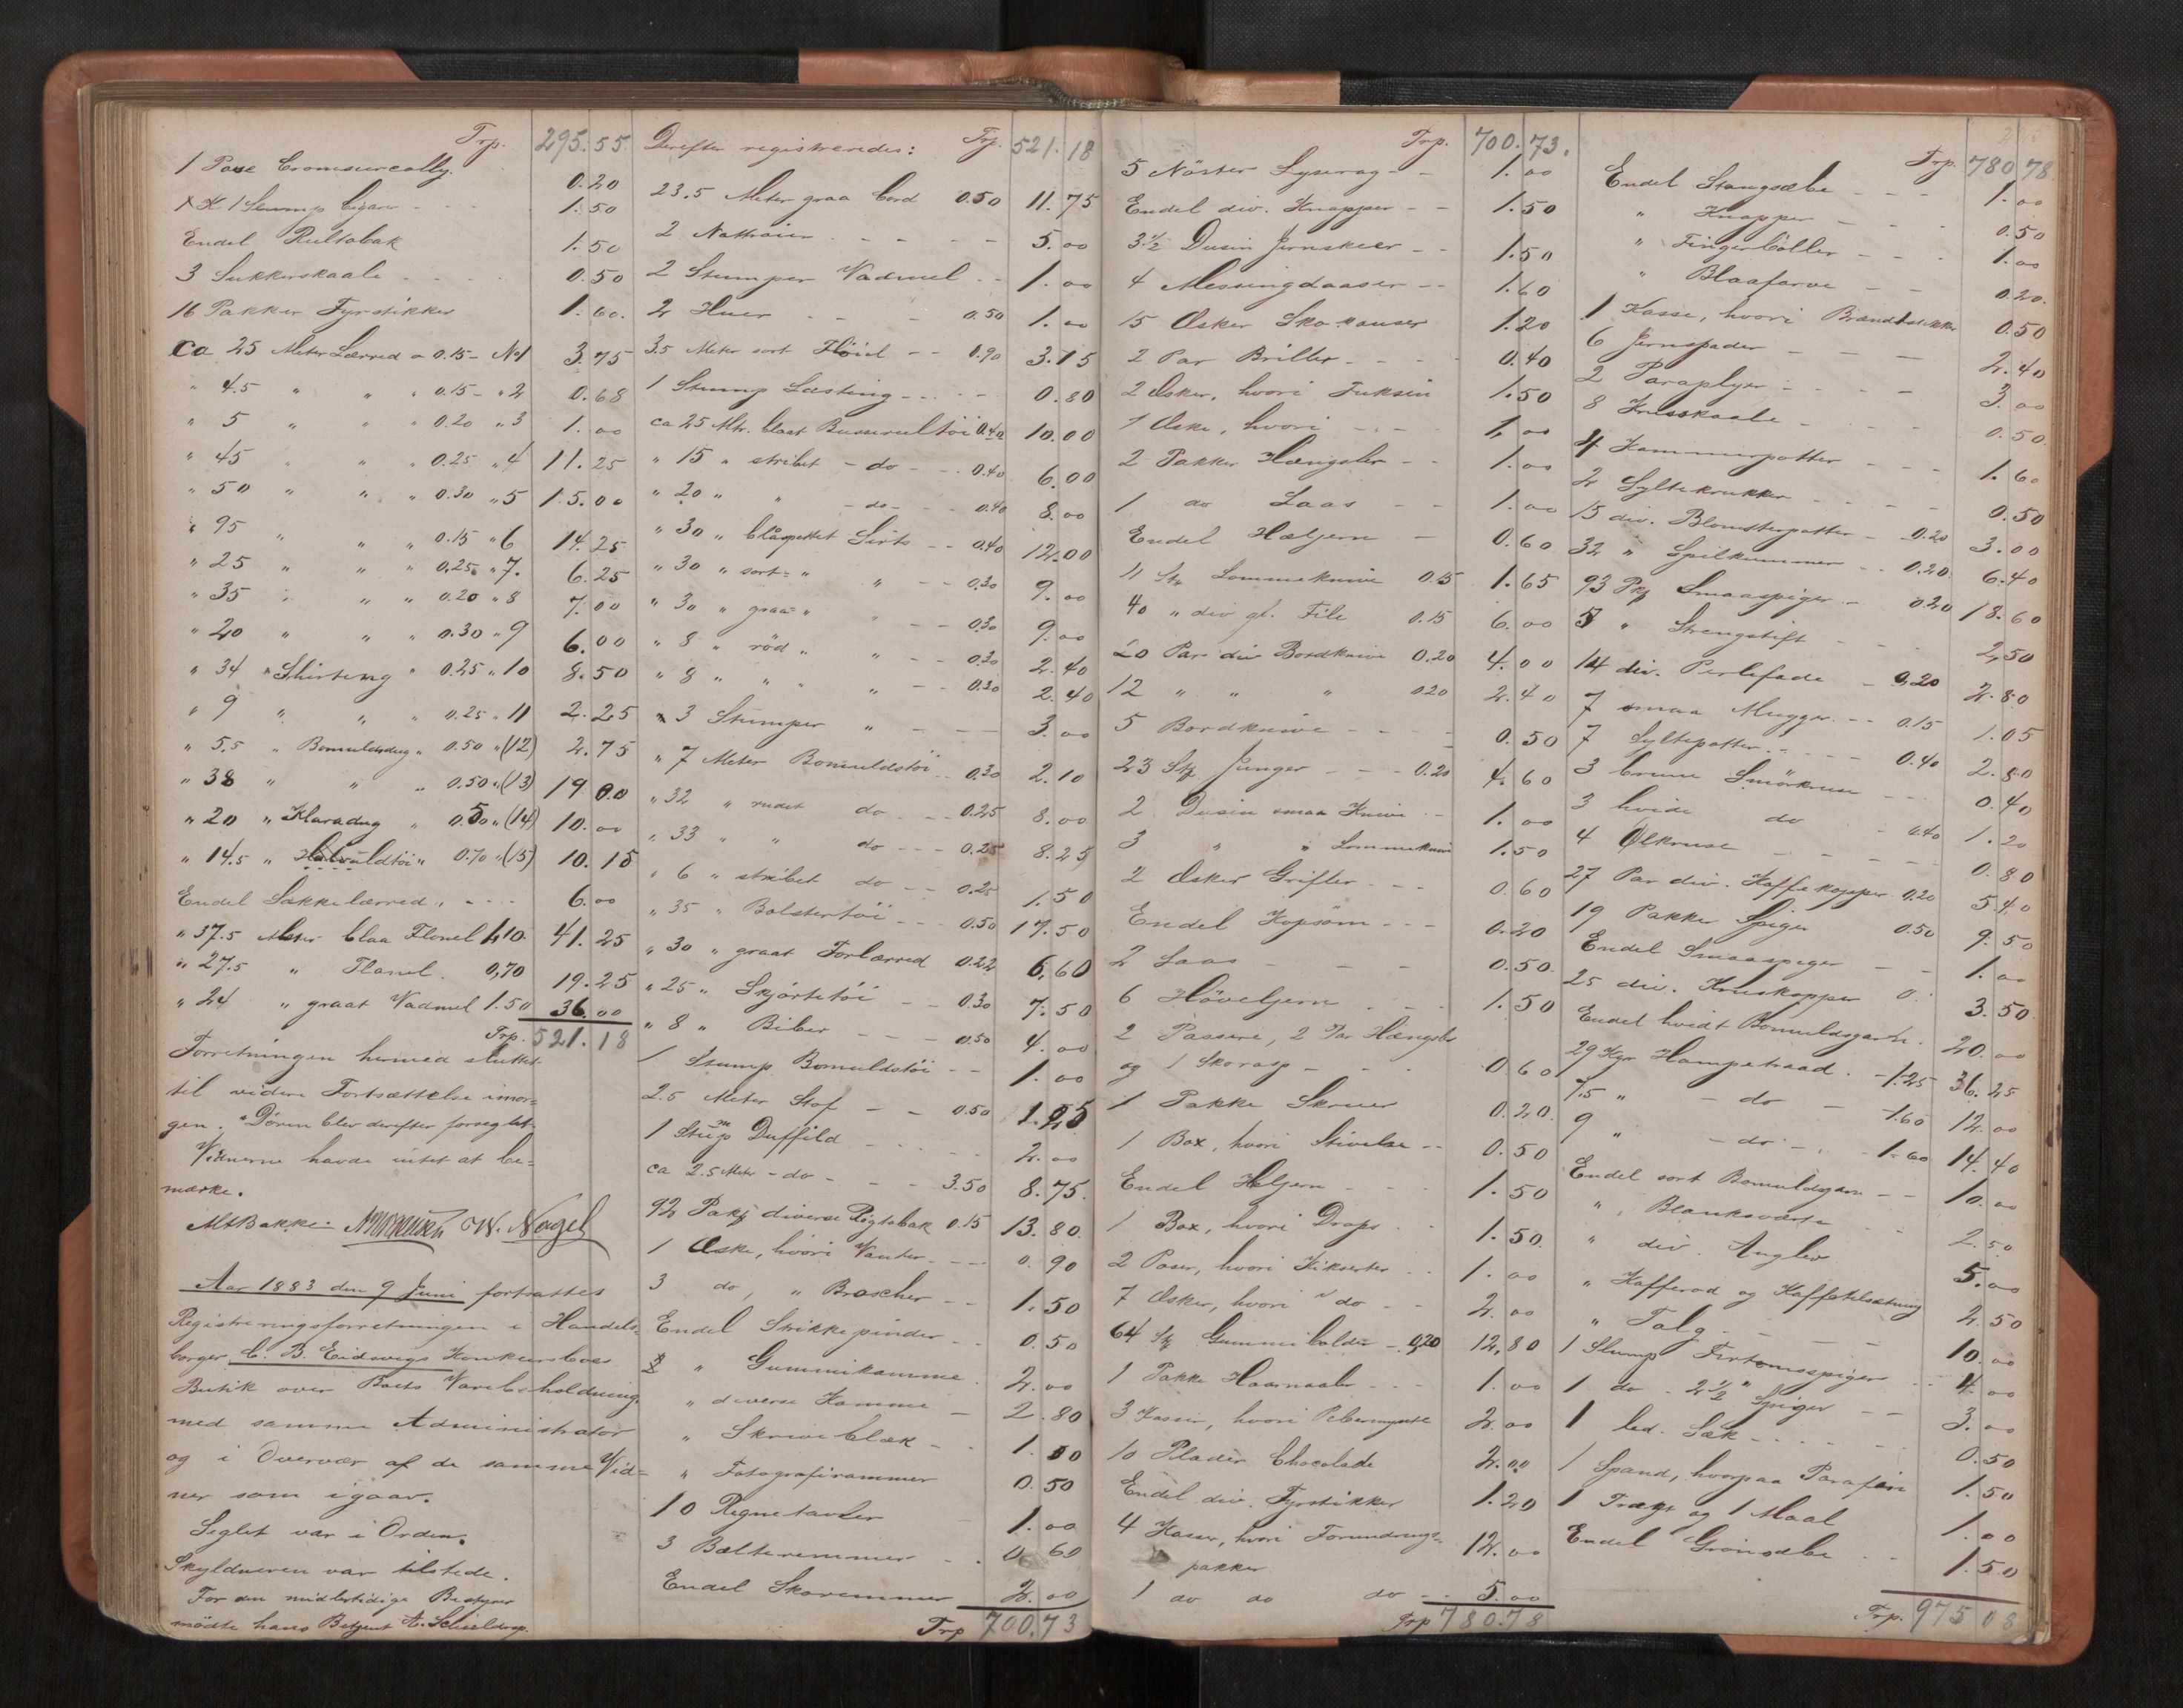 Trp. 295.55
1 Pose 0.20
1 Stump Cigarer 1.50
Endel Rultobak 1.50
3 Sukkerskaale 0.50
16 Pakker Fyrstikker 1.60.
ca 25 Meter Lærred a 0.15 - No 1 3.75
" 4.5 " " " 0.15 - " 2 0.68
" 5 " " " 0.20 " 3 1.00
" 45 " " " 0.25 " 4 11.25
" 50 " " " 0.30 " 5 15.00
" 95 " " " 0.15 " 6 14.25
" 25 " " " 0.25 " 7. 6.25
" 35 " " " 0.20 " 8 7.00
" 20 " " " 0.30 " 9 6.00
" 34 " Shirting " 0.25 " 10 8.50
" 9 " " " 0.25 " 11 2.25
" 5.5 " Bomuldsdug " 0.50 " (12) 2.75
" 38 " " " 0.50 " (13) 19.00
" 20 " Klaradug " 0.50 " (14) 10.00
" 14.5 " Halvuldtöi " 0.70 " (15) 10.15
Endel Sækkelærred 6.00
" 37.5 Meter blaa Flonel 1.10 41.25
" 27.5 " Flanel. 0,70 19.25
" 24 " graat Vadmel 1.50 36.00
Trp. 521.18
Forretningen hermed sluttet
til videre Fortsættelse imor=
gen. Dören blev derefter forseglet.
Vidnerne havde intet at be=
mærke.
W. Nagel
Aar 1883 den 9 Juni fortsattes
Registreringsforretningen i Handels=
borger C. B. Eidsvigs Konkursboes
Butik over Boets Varebeholdning
med samme Administrator
og i Overvær af de samme Vid=
ner som igaar.
Seglet var i Orden.
Skyldneren var tilstede.
For den midlertidige Bestyrer
mödte hans Betjent
Derefter registreredes: Trp. 521.18
23.5 Meter graa Cord 0.50 11.75
2 Nattröier 5.00
2 Stumper Vadmel 1.00
2 Huer 0.50 1.00
3.5 Meter sort Flöiel 0.90 3.15
1 Stump Lasting 0.80
ca 25 Mtr. blaat Busserultöi 0.40 10.00
" 15 " stribet - do - 0.40 6.00
" 20 " " - do - 0.40 8.00
" 30 " Sirts 0.40 12.00
" 30 " sort= " " 0.30 9.00
" 30 " graa= " " 0.30 9.00
" 8 " röd " " 0.30 2.40
" 8 " " " " 0.30 2.40
" 3 Stumper " 3.00
" 7 Meter Bomuldstöi 0.30 2.10
" 32 " rudet do 0.25 8.00
" 33 " " do 0.25 8.25
" 6 " stribet do 0.25 1.50
" 35 " Bolstertöi 0.50 17.50
" 30 " graat Forlærred 0.22 6.60
" 25 " Skjörtetöi 0.30 7.50
" 8 " Biber 0.50 4.00
1 Stump Bomuldstöi 1.00
2.5 Meter Stof 0.50 1.25
1 Stump Duffild 2.00
ca 2.5 Meter - do - 3.50 8.75.
92 Pakk diverse Rögtobak 0.15 13.80.
1 Æske, hvori Vanter 0.90
3 do, " Broscher 1.50
Endel Strikkepinder 0.50
" Gummikamme 2.00
" diverse Kamme 2.80
" Skriveblæk 1.50
" Fotografirammer 0.50
10 Regnetavler 1.00
3 Bælteremmer 0.60
Endel Skoremmer 2.00
Trp 700.73
Trp. 700.73.
5 Nöster Lysevæg 1.00
Endel div. Knapper 1.50
3 1/2 Dusin Jernskeer 1.50
4 Messingdaaser 1.60
15 Æsker 1.20
2 Par Briller 0.40
2 Æsker, hvori Fuksin 1.50
1 Æske, hvori - - 1,00
2 Pakker Hængsler 1.00
1 do Laas 1.00
Endel Hæljern 0.60
11 Stk Lommeknive 0.15 1.65
40 " div gl. File 0.15 6.00
20 Par div Bordknive 0.20 4.00
12 " " " 0.20 2.40
5 Bordknive 0.50
23 Stk Junger 0.20 4.60
2 Dusin smaa Knive 1.00
3 " " Lommeknive 1.50
2 Æsker Grifler 0.60
Endel Kopsöm 0.20
2 Laas 0.50
6 Höveljern 1.50
2 Passere, 2 Par Hængsler
og 1 Skorasp 0.60
1 Pakke Skruer 0.20.
1 Box, hvori Stivelse 0.50
Endel Heljern 1.50
1 Box, hvori Drops 1.50.
2 Poser, hvori 1.00
7 Æsker, hvori " do 2.00
64 Stk Gummibolder 0,20 12,80
1 Pakke Haarnaaler 1.00
3 Kasser, hvori Pebermynte 2.00
10 Plader Chocolade 2.00
Endel div. Fyrstikker 1.20
4 Kasser, hvori Forundrings=
pakker 12.00
1 do do do 5.00
Trp 780.78
Trp. 780.78
Endel Stangsæbe 1.00
" Knapper 0.50
" Fingerböller 1.00
" Blaafarve 0.20.
1 Kasse, hvori 0.50
6 Jernspader 2.40
2 Paraplyer 3.00
8 Krusskaale 0.50.
4 Kammerpotter 1.60
2 Syltekrukker 0.50
15 div. Blomsterpotter 0.20 3.00
32 " Spilkummer 0.20. 6.40
93 Pk Smaaspiger 0.20 18.60
5 " Strengstift 2,50
14 div. Perlefade 0,20 2.80
7 smaa Mugger 0.15 1.05
7 Syltepotter 0.40 2.80
3 brune Smörkruse 0.40
3 hvide do 0.40 1.20
4 Ölkruse 0.80
27 Par div. Kaffekopper 0.20 5.40
19 Pakker Spiger 0.50 9.50
Endel Smaaspiger 1.00
25 div. Kruskopper 3.50
Endel hvidt Bomuldsgarn. 20.00
29 Kgr Hampetraad. 1.25 36.25
7.5 " - do - 1.60 12.00
9 " - do - 1.60 14.40
Endel sort Bomuldsgarn 10.00
" Blanksværte 2.50
" div. Angler 5.00
" Kafferod og Kaffetilsætning 2.50
" Talg 10.00
1 Slump Firtomsspiger 4.00
1 do 2 1/2 " Spiger 3.00
1 led. Sæk 0.50
1 Spand, hvorpaa Parafin 1.50
1 Tragt og 1 Maal 1.00
Endel Grönsæbe 1.50
Trp. 975.08